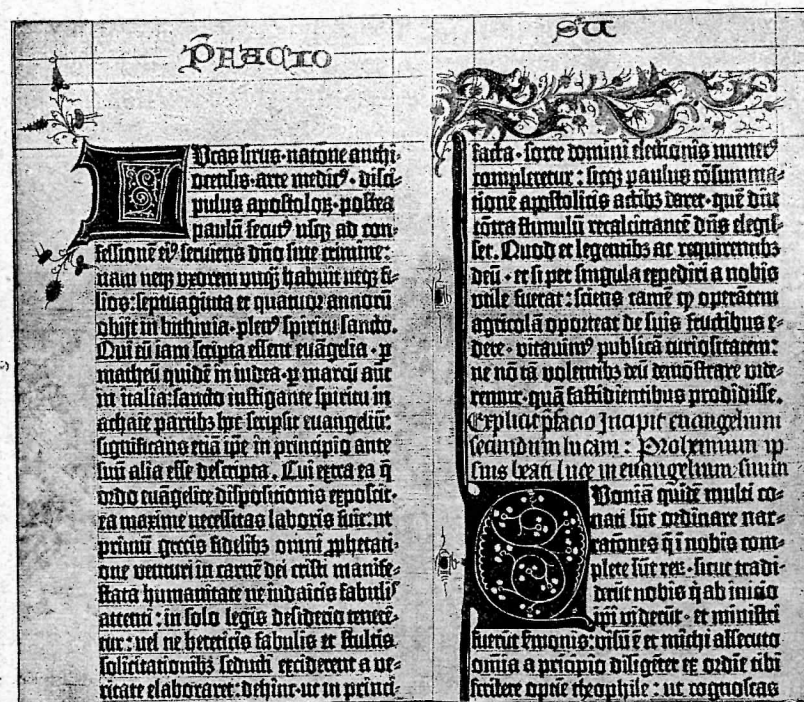 P̃FACIO
SU
Lucas sirus·natone anthi-
ocensis·arte medicꝰ·disci-
pulus apostoloꝝ·postea
paulū secutꝰ usqꝫ ad con-
fessionē eiꝰ serviens dn̄o sine crimine:
nam neqꝫ uxorem unqꝫ̄ habuit neqꝫ fi-
lios: septuaginta et quatuor annorū
obijt in bithinia·plenꝰ spiritu sancto.
Qui cū iam scripta essent euāgelia·ꝑ
matheū quidē in iudea·ꝑ marcū aūt
in italia: sancto instigante spiritu in
achaie partibꝫ hoc scripsit euangeliū:
significans etiā ip̄e in principio ante
suū alia esse descripta. Cui extra ea q̄
ordo euāgelice dispositionis exposcit·
ea maxime necessitas laboris fuit: ut
primū grecis fidelibꝫ omni ꝓphetati-
one venturi in carnē dei cristi manife-
stata humanitate ne iudaicis fabulis
attenti: in solo legis desiderio tenerē-
tur: uel ne hereticis fabulis et stultis
solicitationibꝫ seducti exciderent a ve-
ritate elaboraret: dehinc·ut in princi-
facta·sorte domini electionis numerꝰ
compleretur: sicqꝫ paulus cōsumma-
tionē apostolicis actibꝫ daret·quē diu
cōtra stimulū recalcitrantē dn̄s elegis-
set. Quod et legentibꝫ ac requirentibꝫ
deū·etsi per singula expediri a nobis
utile fuerat: sciens tamē ꝙ operātem
agricolā oporteat de suis fructibus e-
dere·vitauimꝰ publicā curiositatem:
ne nō tā volentibꝫ deū demōstrare vide-
remur·quā fastidientibus prodidisse.
Explicit p̄facio Incipit euangelium
secundum lucam: Prohemium ip
sius beati luce in euangelium suum
Quoniā quidē multi co-
nati sūt ordinare nar-
rationes q̄ i nobis com-
plete sūt reꝝ·sicut tradi-
derūt nobis q̄ ab inicio
ip̄i viderūt·et ministri
fuerūt s̄monis: visū ē et michi assecuto
omīa a pricipio diligēter ex ordīe tibi
scribere optīe theophile: ut cognoscas